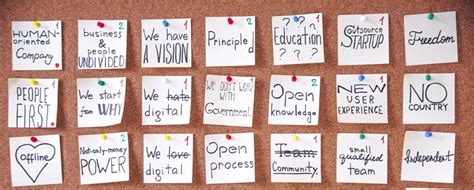 1
HUMAN-
oriented
Company
2
business
& people
UNDIVIDED
1
We have
A VISION
2
Principled
1
? ? ?
Education
? ? ?
1
Outsource
STARTUP
Freedom
PEOPLE
FIRST
We start
from WHY
We hate
digital
1
We DON'T WORK
WITH
Government
2
Open
knowledge
NEW
USER
EXPERIENCE
NO
COUNTRY
offline
2
Not-only-money
POWER
We love
digital
2
Open
process
1
Team
Community
small
qualified
team
Independent